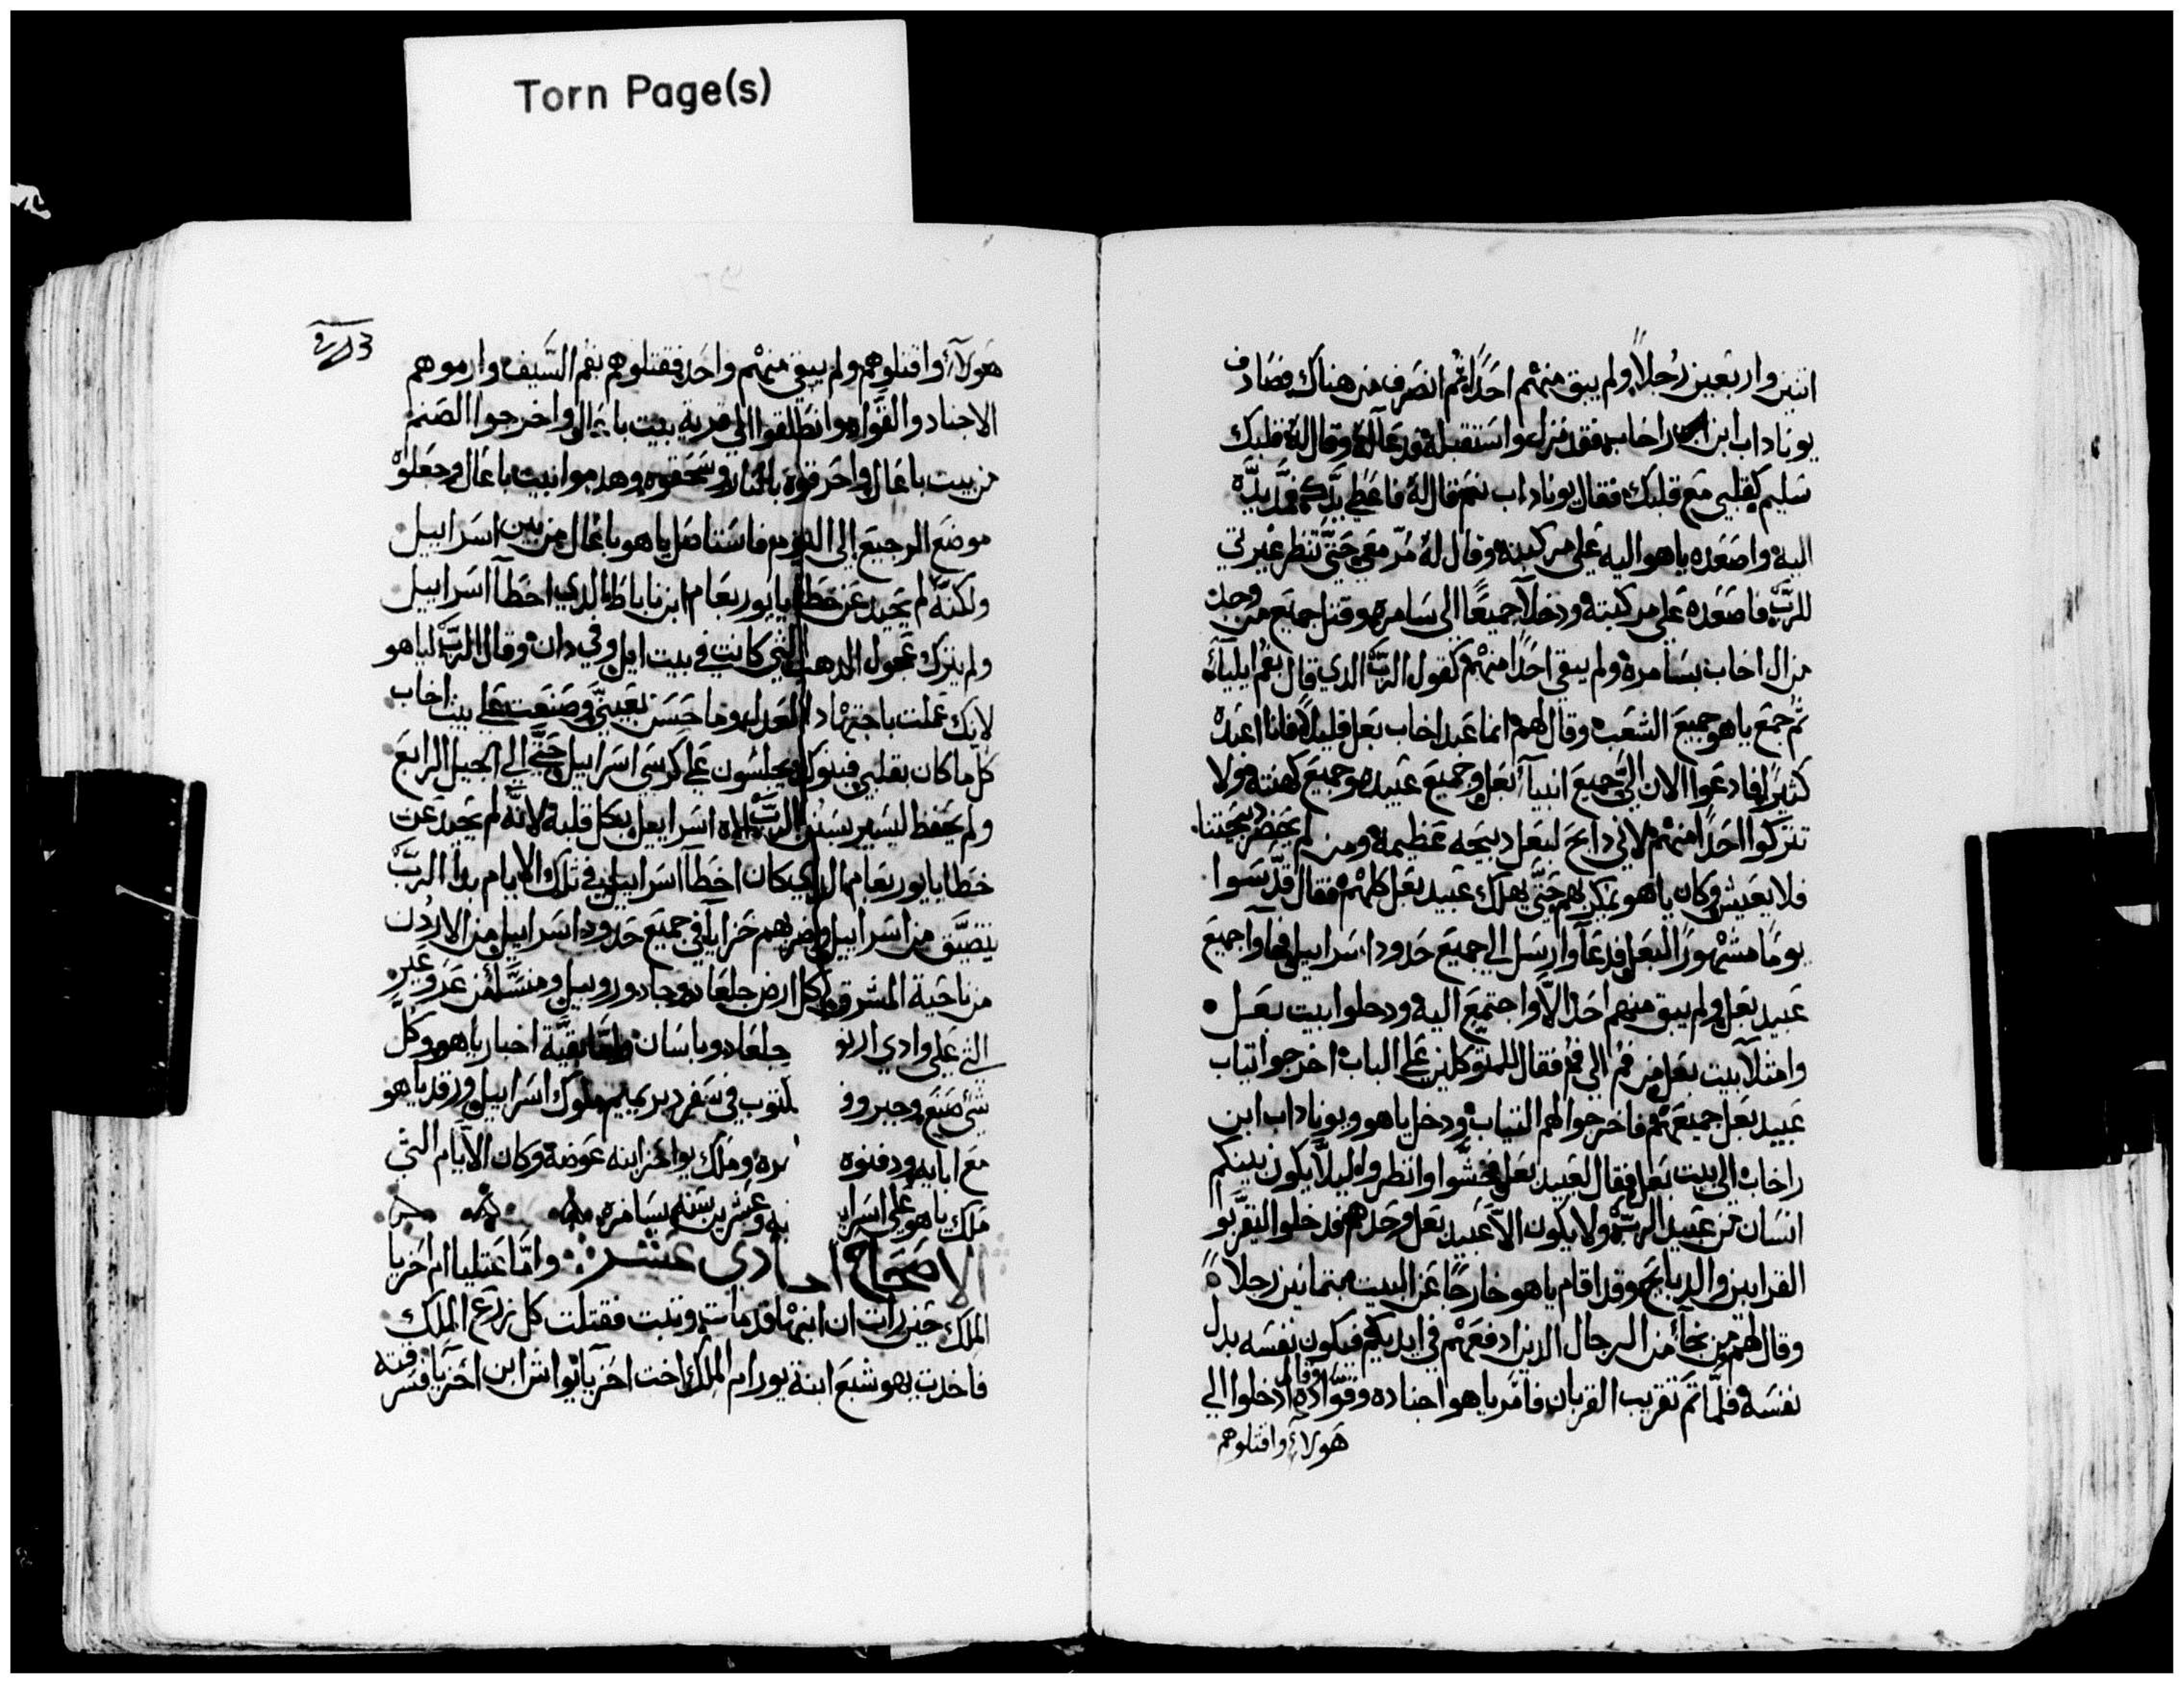 Torn Page(s)
اتنين واربعين رجلاً ولم يبق منهم احداً ثم انصرف من هناك فصادف
يوناداب ابن راخاب فقد نزل واستقبله ودعا له وقال له قلبك
سليم كقلبي مع قلبك فقال يوناداب نعم قال له فاعطي يدك فمد يده
اليه واصعده ياهو اليه على مركبته وقال له مر معي حتى تنظر غيرتي
للرب فاصعده على مركبته ودخلا جميعاً الى سامره وقتل جميع من وجد
من ال اخاب بسامره ولم يبقي احداً منهم كقول الرب الدي قال بفم ايلياء
ثم جمع ياهو جميع الشعب وقال لهم انما عبد اخاب بعل قليلاً فانا اعبده
كثيراً فادعوا الان الي جميع انبيآ بعل وجميع عبيده وجميع كهنته ولا
تتركوا احداً منهم لاني دابح لبعل دبيحه عظيمة ومن لم يحضر دبيحتنا
فلا يعيش وكان ياهو يمكر بهم حتى يهلك عبيد بعل كلهم فقال قدسوا
يوماً مشهوراً لبعل فدعا وارسل الى جميع حدود اسراييل فجاوا جميع
عبيد بعل ولم يبق منهم احد الا واجتمع اليه ودخلوا بيت بعل
وامتلا بيت بعل من فم الى فم فقال للمتوكلين على الباب اخرجوا تياب
عبيد بعل جميعهم فاخرجوا لهم التياب ودخل ياهو ويوناداب ابن
راخاب الى بيت بعل فقال لعبيد بعل فتشوا وانظروا ليلا يكون بينكم
انسان من عبيد الرب ولا يكون الا عبيد بعل وحدهم فدخلوا ليقربو
القرابين والدبايح وقد اقام ياهو خارجاً عن البيت بتمانين رجلاً
وقال لهم من نجا من الرجال الدين ادفعهم في ايديكم فتكون نفسه بدل
نفسه فلما تم تقريب القربان فامر ياهو اجناده وقواده وقال ادخلوا الي
هولاء واقتلوهم
هولاء واقتلوهم ولم يبق منهم واحد فقتلوهم بفم السيف وارموهم
الاجناد والقواد وانطلقوا الي قرية بيت باعال واخرجوا الصنم
من بيت باعال واحرقوه بالنار وسحقوه وهدموا بيت باعال وجعلوه
موضع الرجيع الى اليوم فاستاصل ياهو باعال من بين اسراييل
ولكنه لم يحيد عن خطايا يوربعام ابن ناباط الدي اخطا اسراييل
ولم يترك عجول الدهب التي كانت في بيت ايل وفي دان وقال الرب لياهو
لانك عملت باجتهاد العدل وما حسن بعيني وصنعت على بيت اخاب
كل ما كان بقلبي فبنوك يجلسون على كرسي اسراييل حتى الي الجيل الرابع
ولم يحفظ ليسير بسنن الرب اله اسراييل بكل قلبه لانه لم يحيد عن
خطايا يوربعام الدي كان اخطا اسراييل في تلك الايام بدا الرب
يتضيق من اسراييل وضربهم خزايل في جميع حدود اسراييل من الاردن
من ناحية المشرق كل ارض جلعاد وجاد وروبيل ومنسا من عروعير
التي على وادي ارنو جلعاد وباسان بقية اخبار ياهو وكل
شي صنع وجبروو لتوب في سفر دبريميم ملوك اسراييل ورقد ياهو
مع ابايه ودفنوه ره وملك يواحز ابنه عوضه وكان الايام التي
ملك ياهو على اسراي يه وعشرين سنه بسامره
الاصحاح ا ادي عشر واما عتليا ام احزيا
الملك حين رات ان ابنها قد مات وتبت فقتلت كل زرع الملك
فاخدت يهوشبع ابنة يورام الملك اخت احزيا يواش ابن احزيا فسرقته